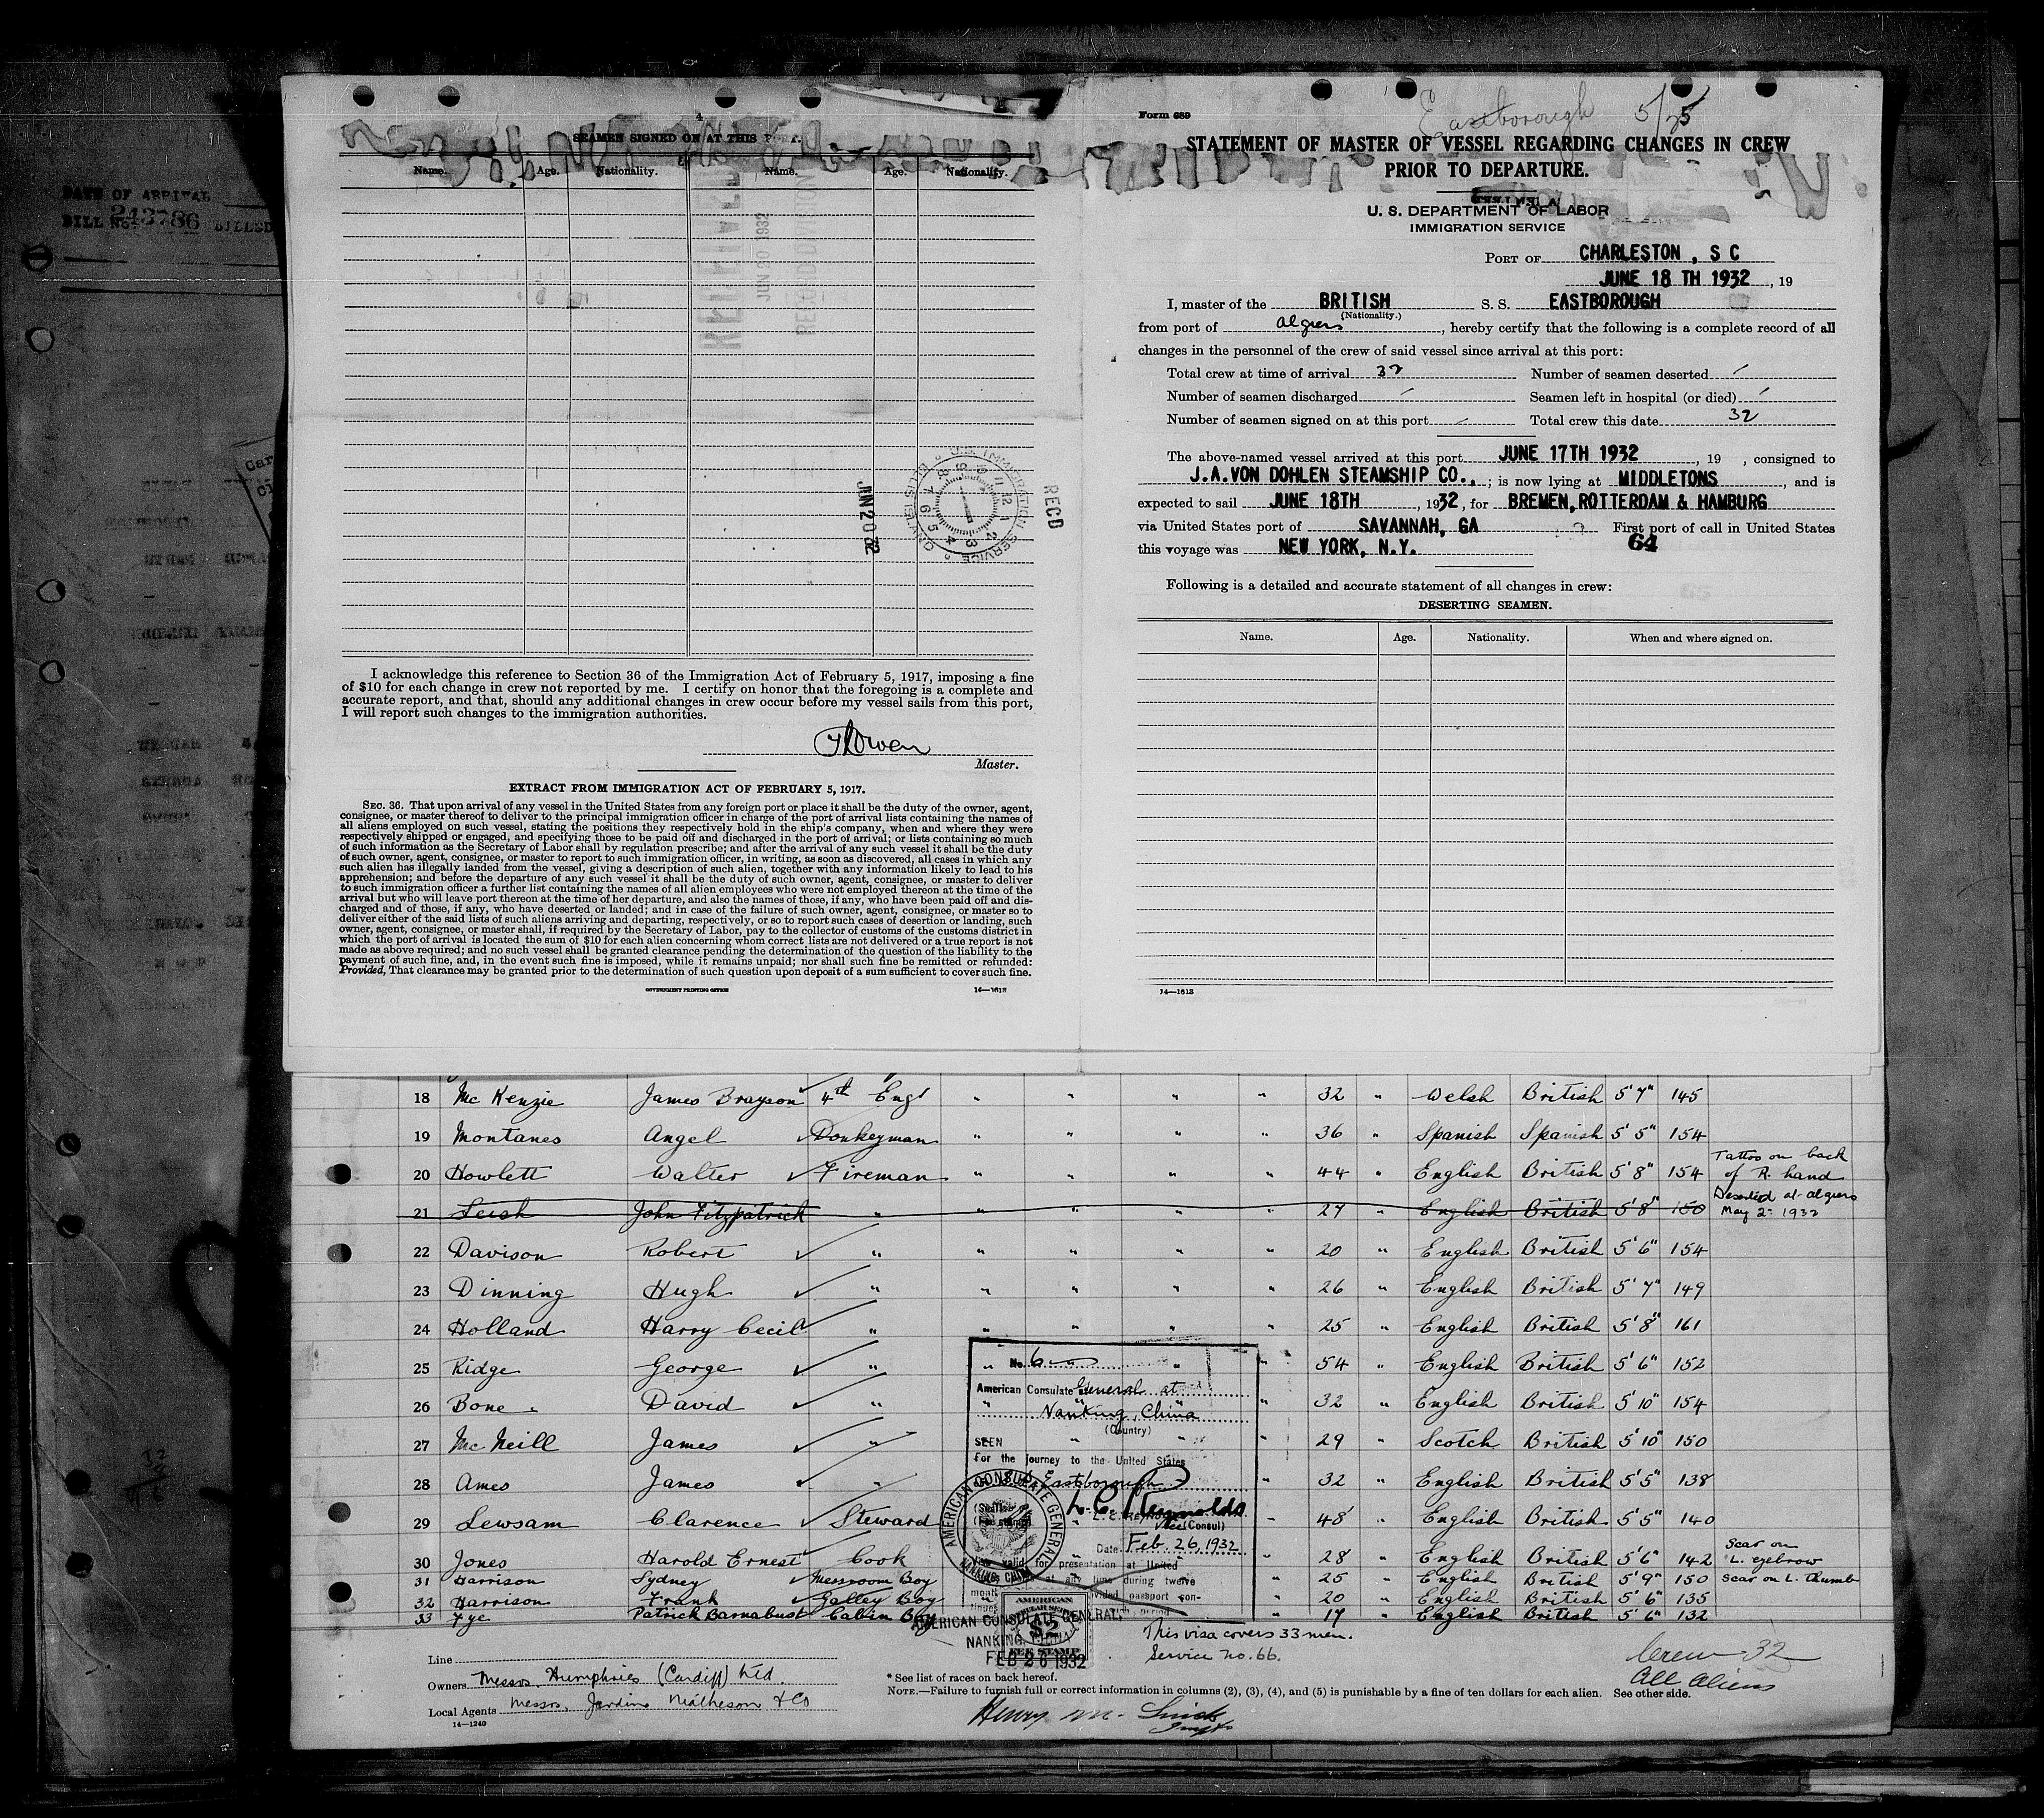 DATE OF ARRIVAL
BILL No. 243786 BILLED
4
SEAMEN SIGNED ON AT THIS PORT.
Name. Age. Nationality. Name. Age. Nationality.
JUN 20 1932
RECD
JUN 20 32
U.S. IMMIGRATION SERVICE
I acknowledge this reference to Section 36 of the Immigration Act of February 5, 1917, imposing a fine
of $10 for each change in crew not reported by me. I certify on honor that the foregoing is a complete and
accurate report, and that, should any additional changes in crew occur before my vessel sails from this port,
I will report such changes to the immigration authorities.
Owen
Master.
EXTRACT FROM IMMIGRATION ACT OF FEBRUARY 5, 1917.
SEC. 36. That upon arrival of any vessel in the United States from any foreign port or place it shall be the duty of the owner, agent,
consignee, or master thereof to deliver to the principal immigration officer in charge of the port of arrival lists containing the names of
all aliens employed on such vessel, stating the positions they respectively hold in the ship's company, when and where they were
respectively shipped or engaged, and specifying those to be paid off and discharged in the port of arrival; or lists containing so much
of such information as the Secretary of Labor shall by regulation prescribe; and after the arrival of any such vessel it shall be the duty
of such owner, agent, consignee, or master to report to such immigration officer, in writing, as soon as discovered, all cases in which any
such alien has illegally landed from the vessel, giving a description of such alien, together with any information likely to lead to his
apprehension; and before the departure of any such vessel it shall be the duty of such owner, agent, consignee, or master to deliver
to such immigration officer a further list containing the names of all alien employees who were not employed thereon at the time of the
arrival but who will leave port thereon at the time of her departure, and also the names of those, if any, who have been paid off and dis-
charged and of those, if any, who have deserted or landed; and in case of the failure of such owner, agent, consignee, or master so to
deliver either of the said lists of such aliens arriving and departing, respectively, or so to report such cases of desertion or landing, such
owner, agent, consignee, or master shall, if required by the Secretary of Labor, pay to the collector of customs of the customs district in
which the port of arrival is located the sum of $10 for each alien concerning whom correct lists are not delivered or a true report is not
made as above required; and no such vessel shall be granted clearance pending the determination of the question of the liability to the
payment of such fine, and, in the event such fine is imposed, while it remains unpaid; nor shall such fine be remitted or refunded:
Provided, That clearance may be granted prior to the determination of such question upon deposit of a sum sufficient to cover such fine.
GOVERNMENT PRINTING OFFICE 14—1613
Form 689
Eastborough 5/25
STATEMENT OF MASTER OF VESSEL REGARDING CHANGES IN CREW
PRIOR TO DEPARTURE.
U. S. DEPARTMENT OF LABOR
IMMIGRATION SERVICE
PORT OF CHARLESTON, S C
JUNE 18 TH 1932, 19
I, master of the BRITISH S. S. EASTBOROUGH
(Nationality.)
from port of Algiers, hereby certify that the following is a complete record of all
changes in the personnel of the crew of said vessel since arrival at this port:
Total crew at time of arrival 32 Number of seamen deserted /
Number of seamen discharged / Seamen left in hospital (or died) /
Number of seamen signed on at this port / Total crew this date 32
The above-named vessel arrived at this port JUNE 17TH 1932, 19 , consigned to
J.A.VON DOHLEN STEAMSHIP CO., ; is now lying at MIDDLETONS, and is
expected to sail JUNE 18TH, 1932, for BREMEN,ROTTERDAM & HAMBURG
via United States port of SAVANNAH, GA First port of call in United States
this voyage was NEW YORK, N.Y. 64
Following is a detailed and accurate statement of all changes in crew:
DESERTING SEAMEN.
Name. Age. Nationality. When and where signed on.
14—1613
18 Mc Kenzie James Brayson 4th Engr " " " " 32 " Welsh British 5'7" 145
19 Montanes Angel Donkeyman " " " " 36 " Spanish Spanish 5'5" 154
20 Howlett Walter Fireman " " " " 44 " English British 5'8" 154 Tattoo on back of R. hand
21 Leish John Fitzpatrick " " " " " 27 " English British 5'8" 150 Deserted at Algiers May 2 1932
22 Davison Robert " " " " " 20 " English British 5'6" 154
23 Dinning Hugh " " " " " 26 " English British 5'7" 149
24 Holland Harry Cecil " " " " " 25 " English British 5'8" 161
25 Ridge George " " " " 54 " English British 5'6" 152
26 Bone David " " " 32 " English British 5'10" 154
27 Mc Neill James " " " 29 " Scotch British 5'10" 150
28 Ames James " " 32 " English British 5'5" 138
29 Lewsam Clarence Steward " 48 " English British 5'5" 140
30 Jones Harold Ernest Cook " 28 " English British 5'6" 142 Scar on L. eyebrow
31 Harrison Sydney Messroom Boy " 25 " English British 5'9" 150 Scar on L. Thumb
32 Harrison Frank Galley Boy " 20 " English British 5'6" 135
33 Fye Patrick Barnabust Cabin Boy " 17 " English British 5'6" 132
No. 6
American Consulate General at
Nanking, China
(Country)
SEEN
For the journey to the United States
Eastborough
L. C. Reynolds
Vice (Consul)
Date Feb. 26, 1932
valid for presentation at United
at any time during twelve
months
passport con-
AMERICAN CONSULATE GENERAL
NANKING, CHINA
AMERICAN
$2
FEE STAMP
AMERICAN CONSULATE GENERAL,
NANKING, CHINA
FEB 26 1932
This visa covers 33 men.
Service no. 66.
Crew 32
All Aliens
Line
Owners Messrs. Humphries (Cardiff) Ltd.
Local Agents Messrs. Jardine Matheson & Co
14—1240
* See list of races on back hereof.
NOTE.—Failure to furnish full or correct information in columns (2), (3), (4), and (5) is punishable by a fine of ten dollars for each alien. See other side.
Henry M.